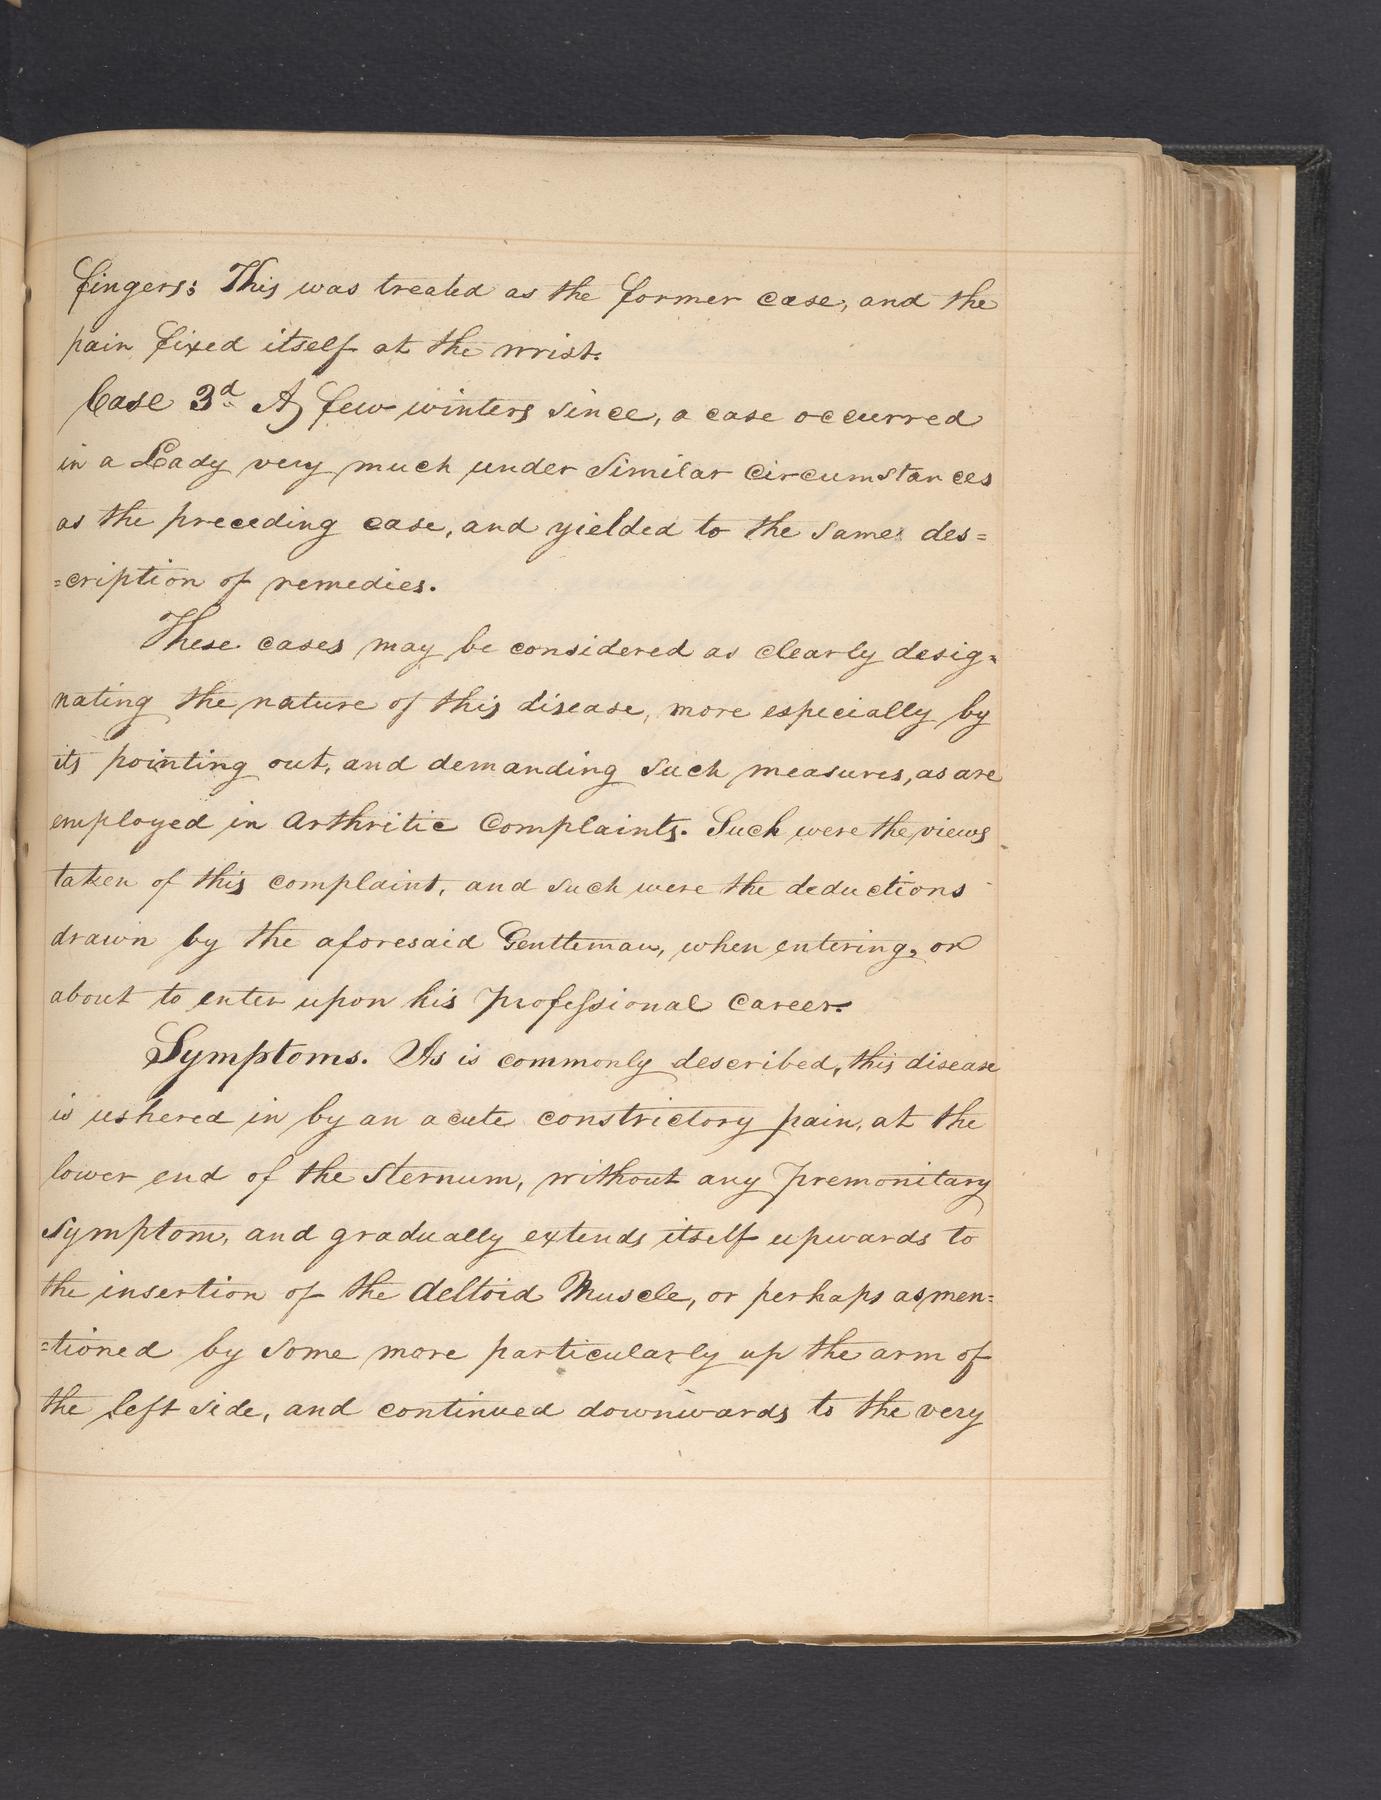 fingers; This was treated as the former case, and the
pain fixed itself at the wrist.
Case 3d A few winters since, a case occurred
in a Lady very much under Similar Circumstances
as the preceding case, and yielded to the same des=
=cription of remedies.
These cases may be considered as clearly desig=
nating the nature of this disease, more especially by
its pointing out, and demanding such measures, as are
employed in Arthritic Complaints. Such were the views
taken of this complaint, and such were the deductions
drawn by the aforesaid Gentleman, when entering, or
about to enter upon his Professional Career.
Symptoms. As is commonly described, this disease
is ushered in by an acute constrictory pain, at the
lower end of the Sternum, without any premonitary
symptom, and gradually extends itself upwards to
the insertion of the deltoid Muscle, or perhaps as men=
=tioned by some more particularly up the arm of
the left side, and continued downwards to the very